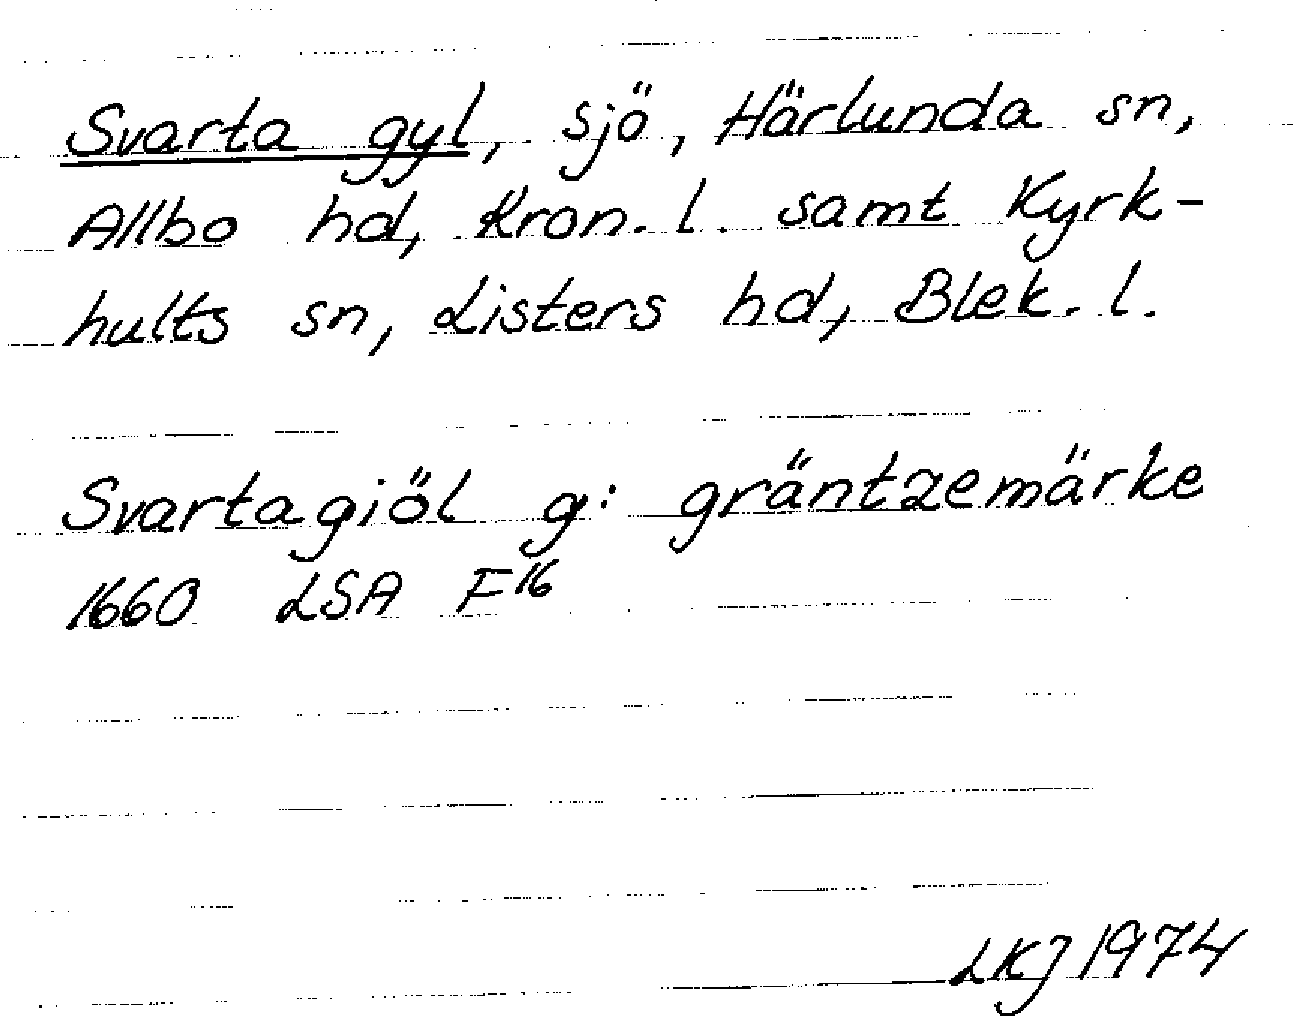 Svarta gyl, sjö, Härlunda sn,
Allbo hd, Kron. l. samt Kyrk-
hults sn, Listers hd, Blek. l.
Svartagiöl g: gräntzemärke
1660 LSA F16
LKJ 1974